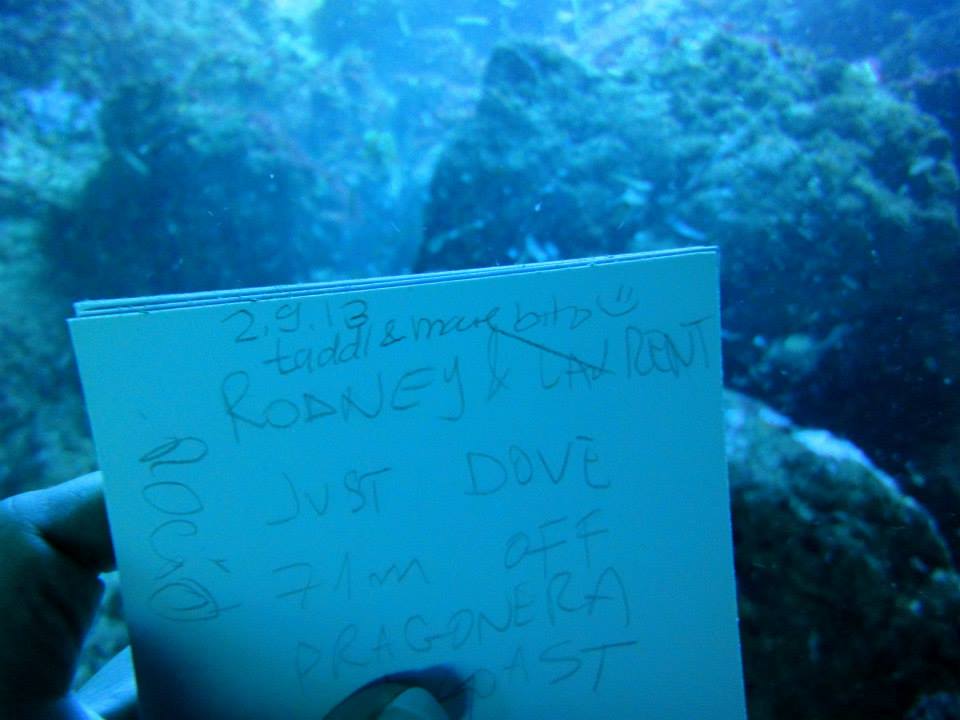 2.9.13
taddl & marc bito
RODNEY & LAURENT
JUST DOVE
71m OFF
DRAGONERA
COAST